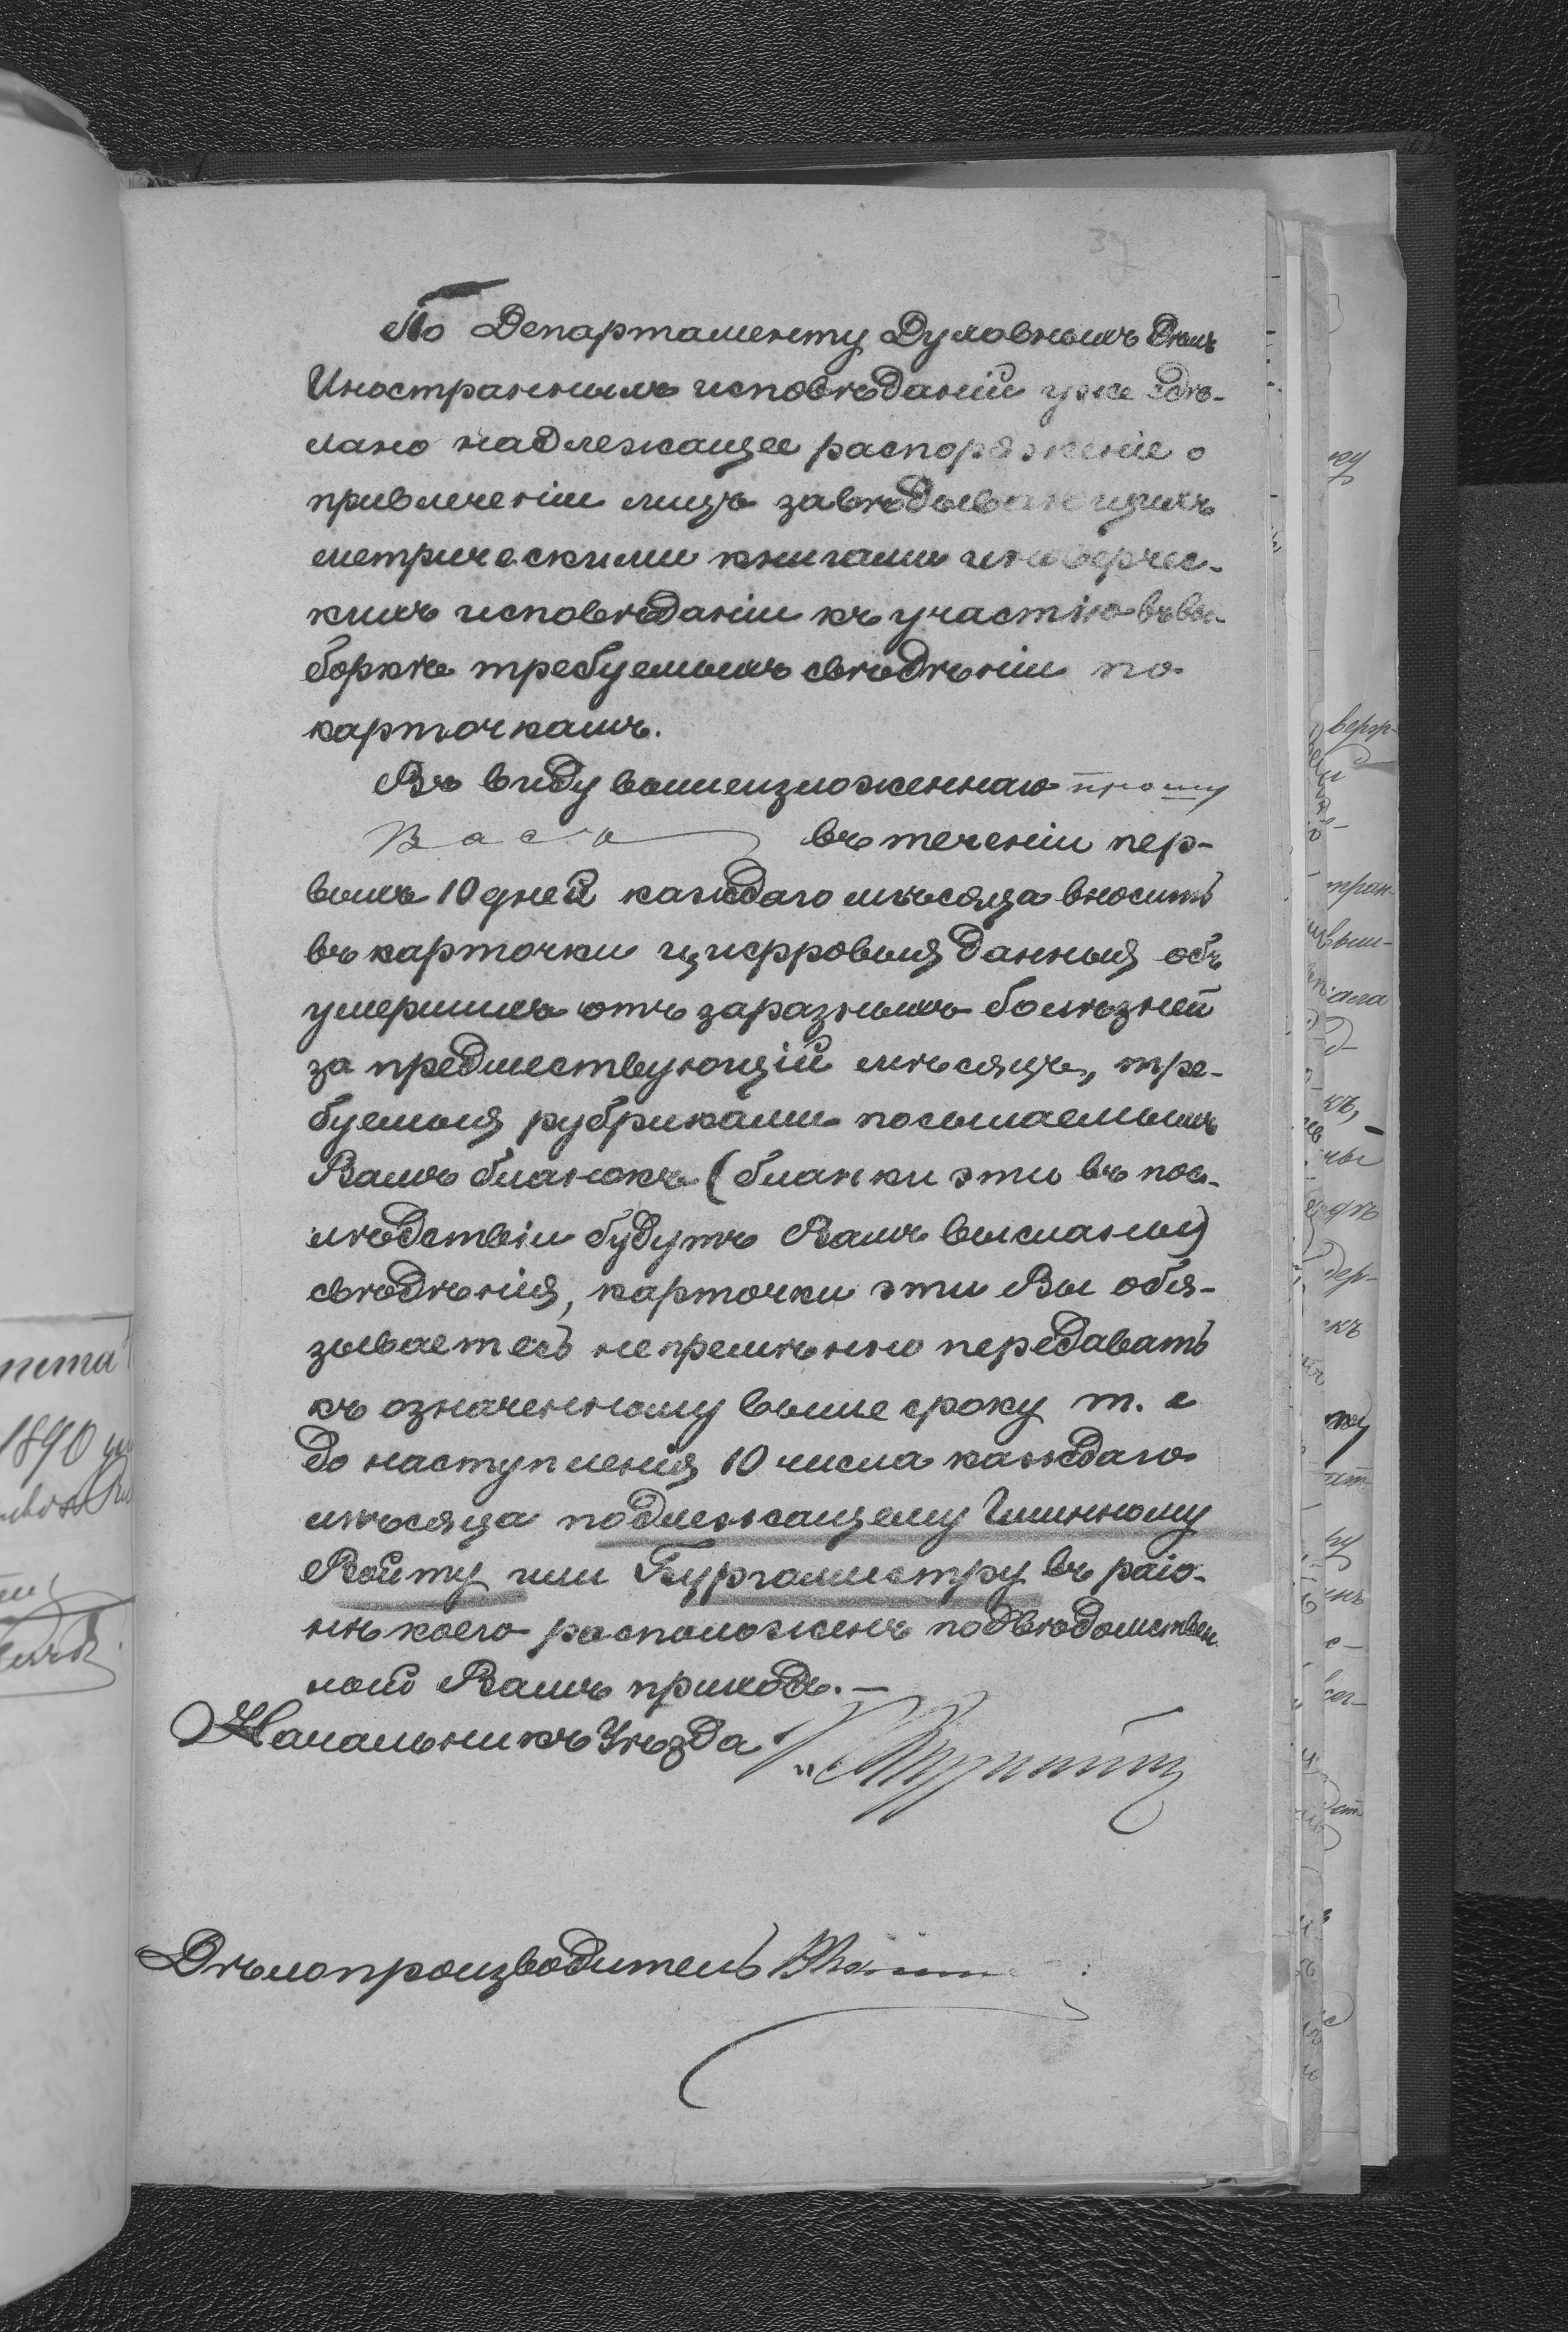 37
По Департаменту Духовныхъ Дѣлъ
Иностранныхъ исповѣданій уже сдѣ-
лано надлежащее распоряженіе о
привлеченіи лицъ завѣдывающихъ
метрическими книгами иновѣрчес-
кихъ исповѣданій къ участію въ вы-
боркѣ требуемыхъ свѣдѣній по
карточкамъ.
Въ виду вышеизложеннаго прошу
Васъ въ теченіи пер-
выхъ 10 дней каждаго мѣсяца вносить
въ карточки цифровыя данныя объ
умершихъ отъ заразныхъ болѣзней
за предшествующій мѣсяцъ, тре-
буемыя рубриками посылаемыхъ
Вамъ бланокъ (бланки эти въ пос-
лѣдствіи будутъ Вамъ высланы)
свѣдѣнія, карточки эти Вы обя-
зываетесь непремѣнно передавать
къ означенному выше сроку т. е
до наступленія 10 числа каждаго
мѣсяца подлежащему Гминному
Войту или Бургомистру въ раіо-
нѣ коего расположенъ подвѣдомствен
ный Вамъ приходъ.—
Начальникъ Уѣзда
Дѣлопроизводитель